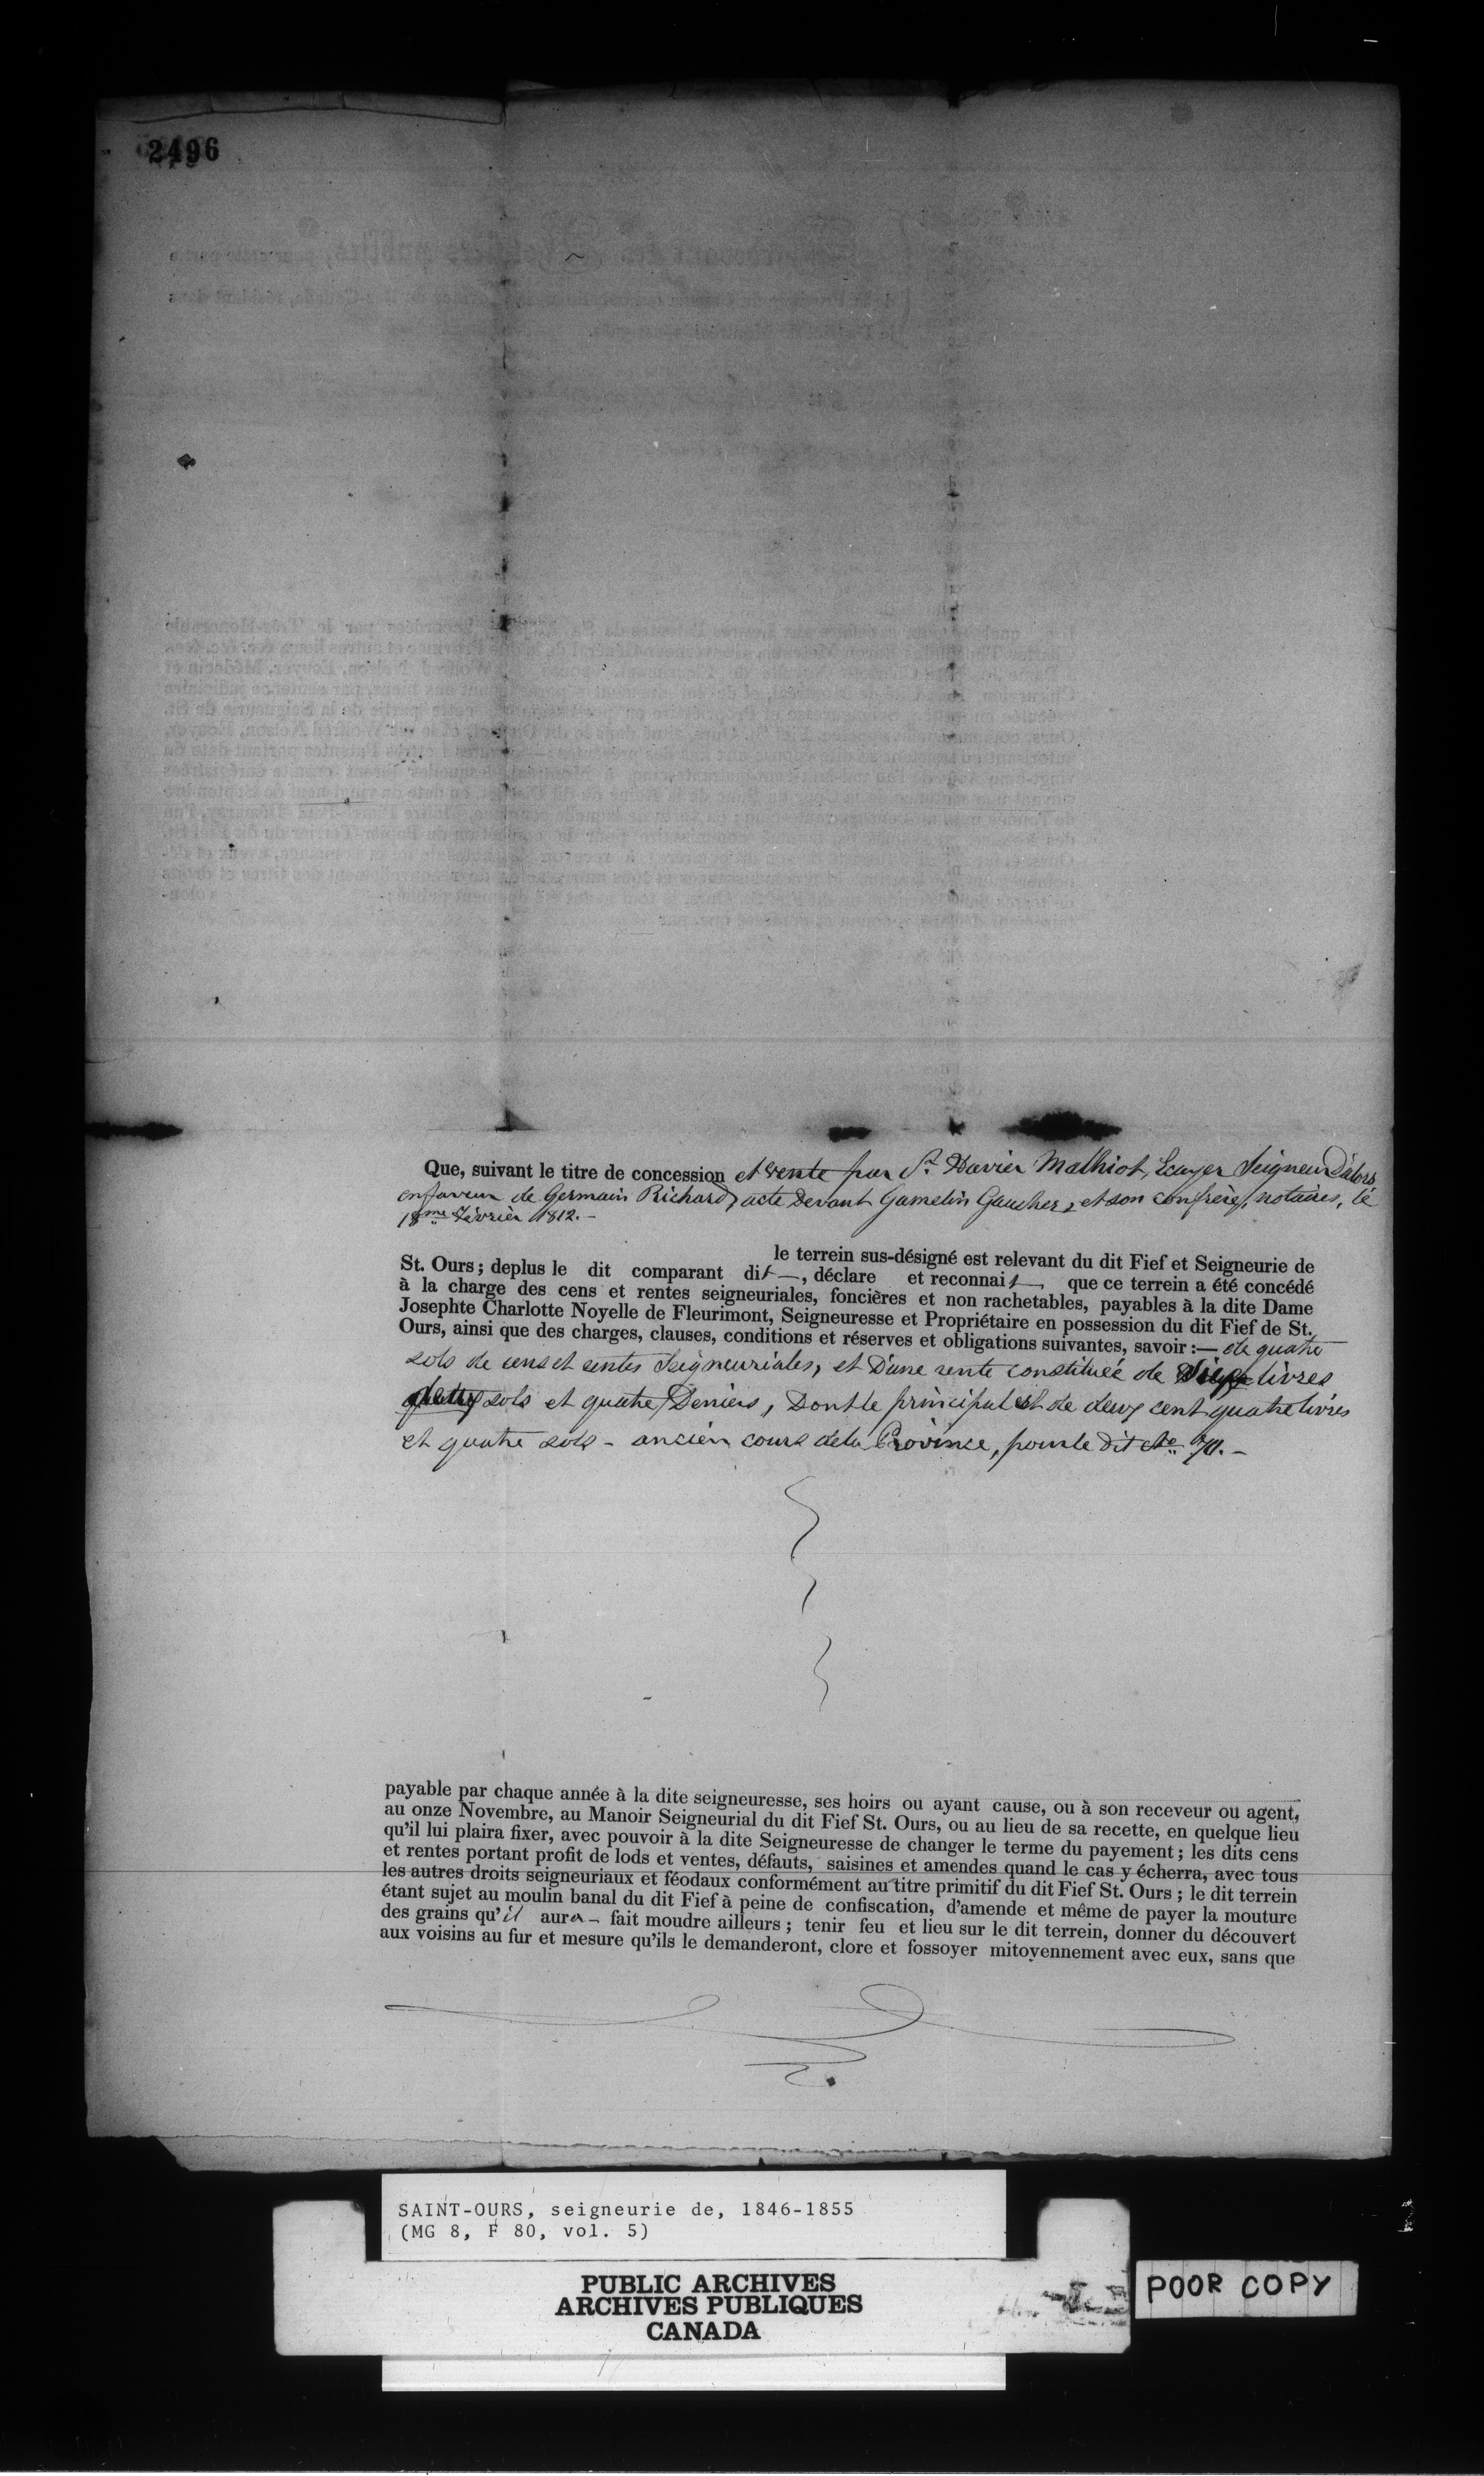 2496
Que, suivant le titre de concession et vente par Sr. Xavier Malhiot, Ecuyer Seigneur D'alors
enfaveur de Germain Richard, acte Devant Gamelin Gaucher, et son confrère, notaires, le
18me Février 1812.—
le terrein sus-désigné est relevant du dit Fief et Seigneurie de
St. Ours; deplus le dit comparant dit —, déclare et reconnait — que ce terrein a été concédé
à la charge des cens et rentes seigneuriales, foncières et non rachetables, payables à la dite Dame
Josephte Charlotte Noyelle de Fleurimont, Seigneuresse et Propriétaire en possession du dit Fief de St.
Ours, ainsi que des charges, clauses, conditions et réserves et obligations suivantes, savoir :— de quatre
sols de cens et rentes Seigneuriales, et D'une rente constituée de livres
sols et quatre Deniers, Dont le principal est de deux cent quatre livres
et quatre sols - ancien cours de la Province, pour le dit No
payable par chaque année à la dite seigneuresse, ses hoirs ou ayant cause, ou à son receveur ou agent,
au onze Novembre, au Manoir Seigneurial du dit Fief St. Ours, ou au lieu de sa recette, en quelque lieu
qu'il lui plaira fixer, avec pouvoir à la dite Seigneuresse de changer le terme du payement ; les dits cens
et rentes portant profit de lods et ventes, défauts, saisines et amendes quand le cas y écherra, avec tous
les autres droits seigneuriaux et féodaux conformément au titre primitif du dit Fief St. Ours ; le dit terrein
étant sujet au moulin banal du dit Fief à peine de confiscation, d'amende et même de payer la mouture
des grains qu'il aura — fait moudre ailleurs ; tenir feu et lieu sur le dit terrein, donner du découvert
aux voisins au fur et mesure qu'ils le demanderont, clore et fossoyer mitoyennement avec eux, sans que
SAINT-OURS, seigneurie de, 1846-1855
(MG 8, F 80, vol. 5)
PUBLIC ARCHIVES
ARCHIVES PUBLIQUES
CANADA
POOR COPY